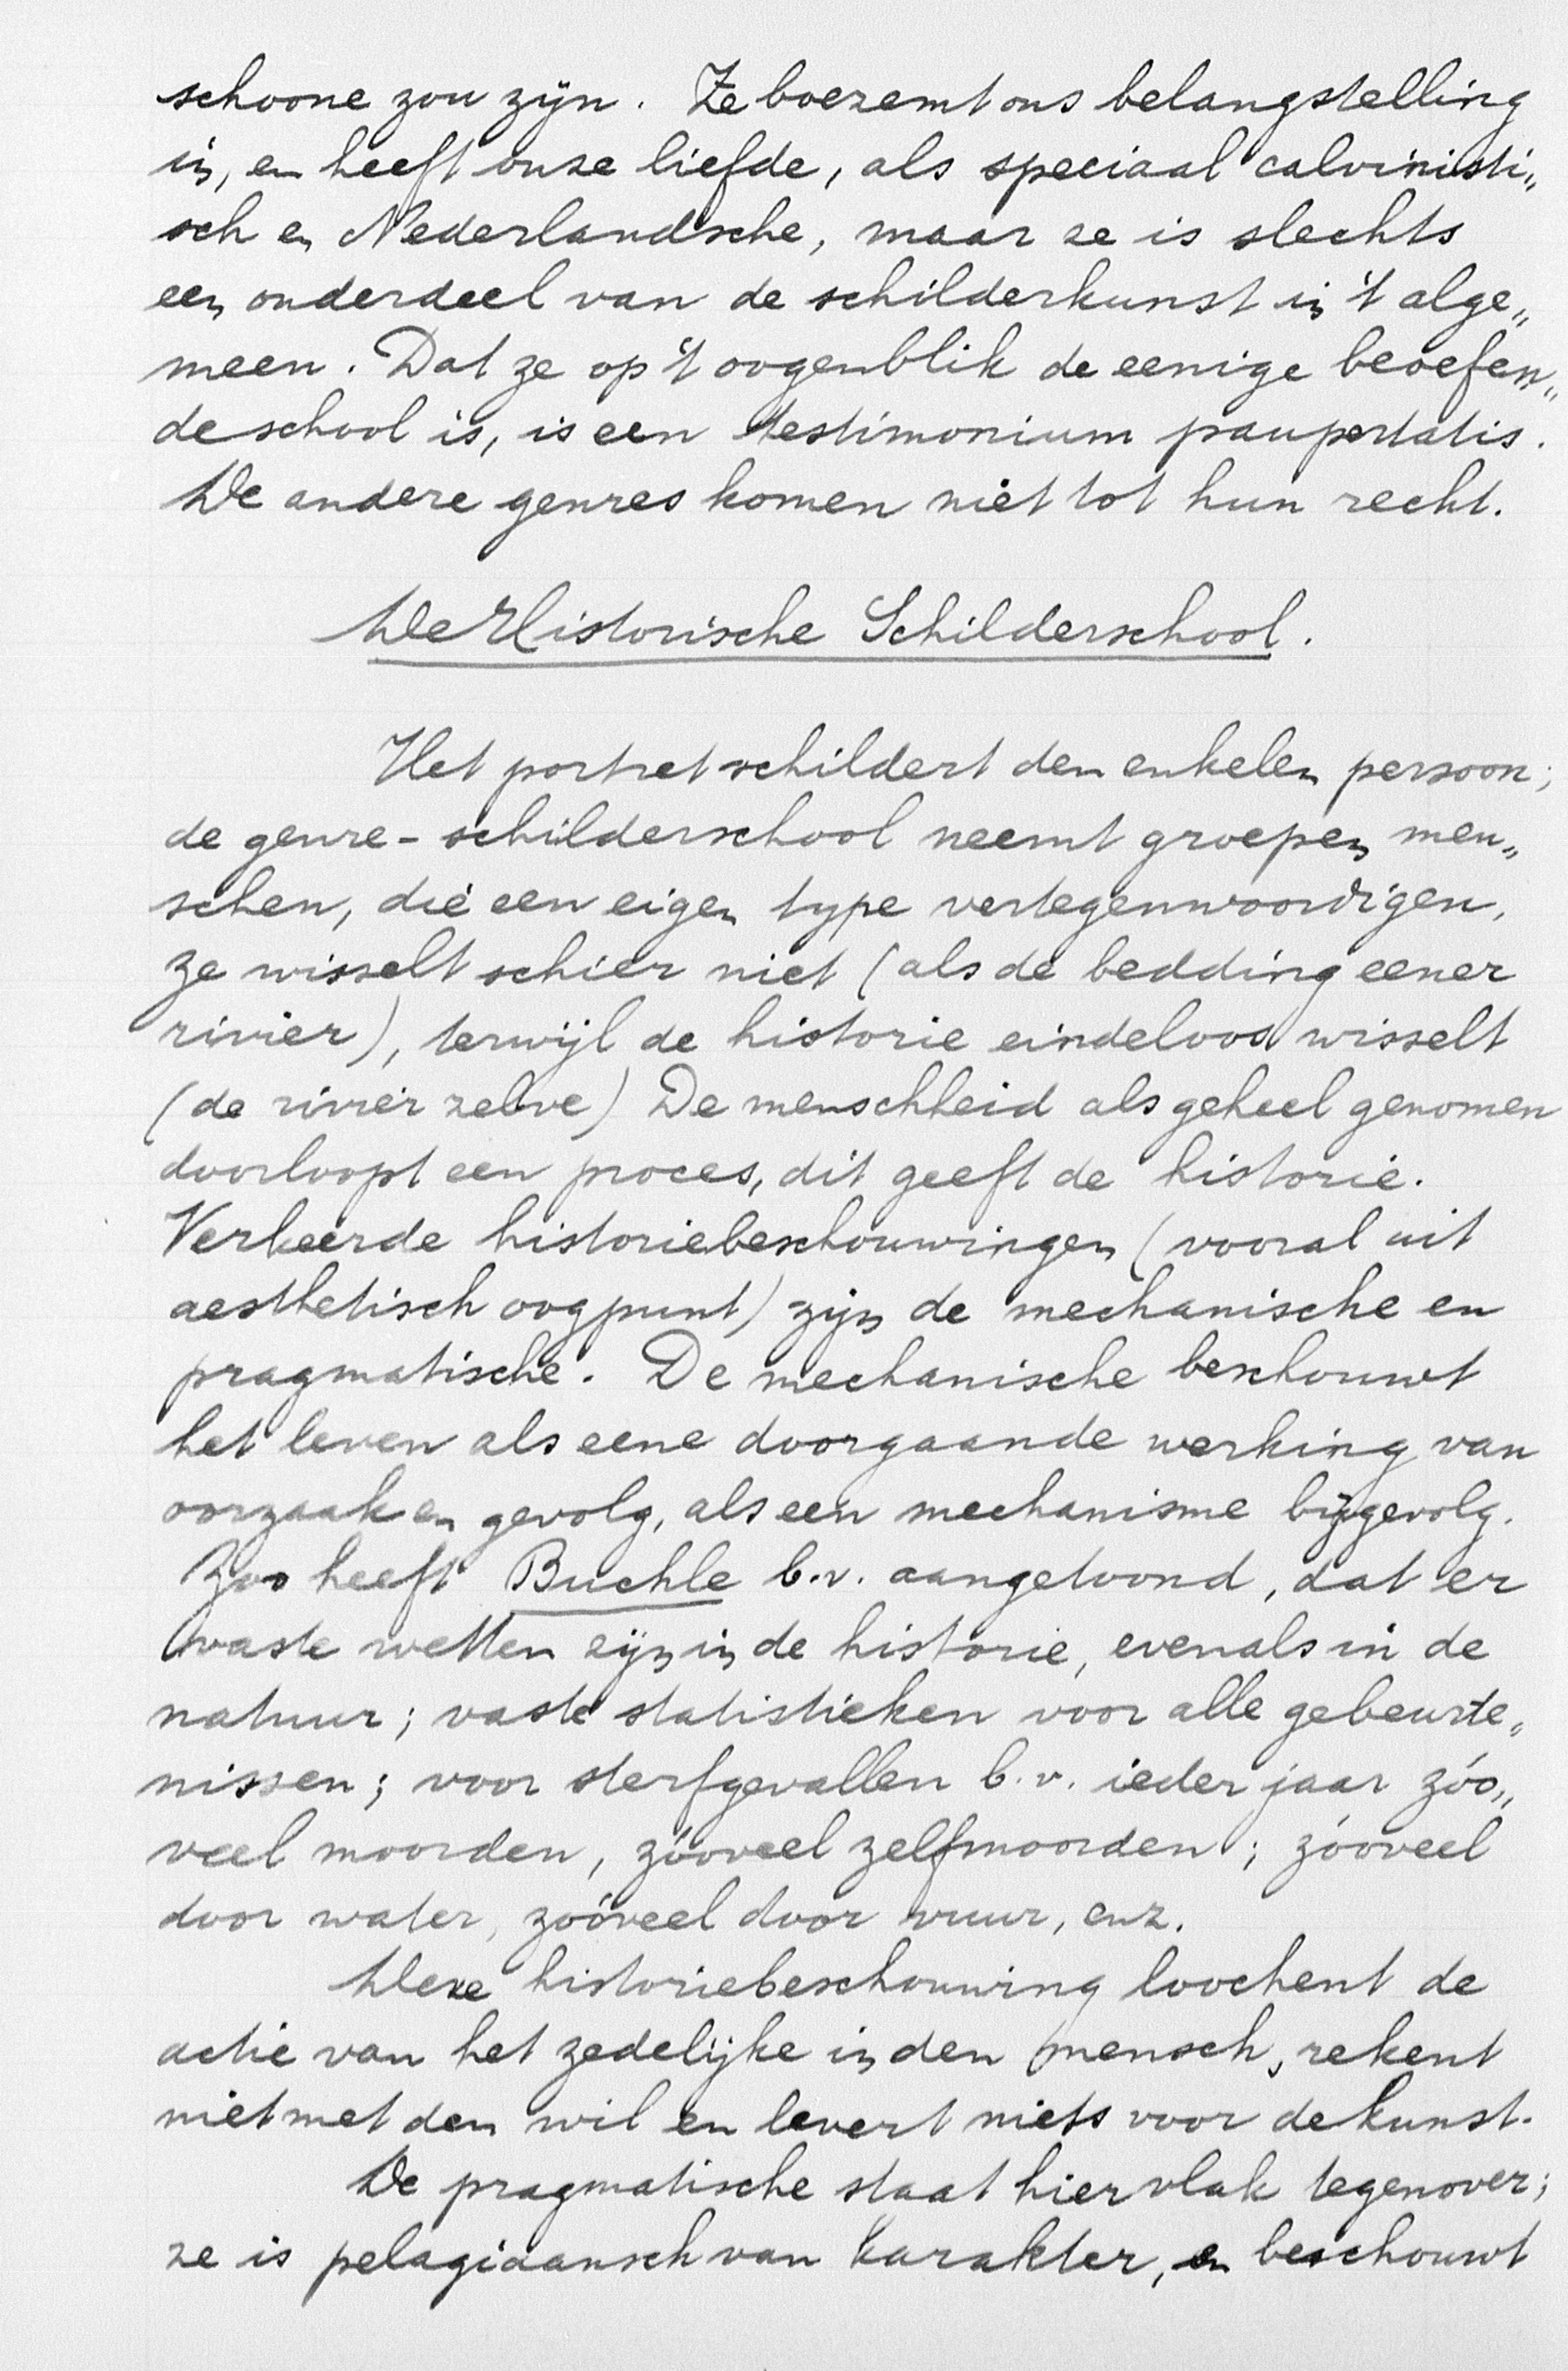 schoone zou zijn. Ze boezemt ons belangstelling
in, en heeft onze liefde, als speciaal calvinisti„
sch en Nederlandsche, maar ze is slechts
een onderdeel van de schilderkunst in 't alge„
meen. Dat ze op 't oogenblik de eenige beoefen„
de school is, is een testimonium paupertatis.
De andere genres komen niet tot hun recht.
De Historische Schilderschool.
Het portret schildert den enkelen persoon;
de genre-schilderschool neemt groepen men„
schen, die een eigen type vertegenwoordigen,
ze wisselt schier niet (als de bedding eener
rivier), terwijl de historie eindeloos wisselt
(de rivier zelve) De menschheid als geheel genomen
doorloopt een proces, dit geeft de historie.
Verkeerde historiebeschouwingen (vooral uit
aesthetisch oogpunt) zijn de mechanische en
pragmatische. De mechanische beschouwt
het leven als eene doorgaande werking van
oorzaak en gevolg, als een mechanisme bijgevolg.
Zoo heeft Buchle b.v. aangetoond, dat er
vaste wetten zijn in de historie, evenals in de
natuur; vaste statistieken voor alle gebeurte„
nissen; voor sterfgevallen b.v. ieder jaar zóo„
veel moorden, zóoveel zelfmoorden; zóoveel
door water, zoóveel door vuur, enz.
Deze historiebeschouwing loochent de
actie van het zedelijke in den mensch, rekent
niet met den wil en levert niets voor de kunst.
De pragmatische staat hier vlak tegenover;
ze is pelagiaansch van karakter, en beschouwt